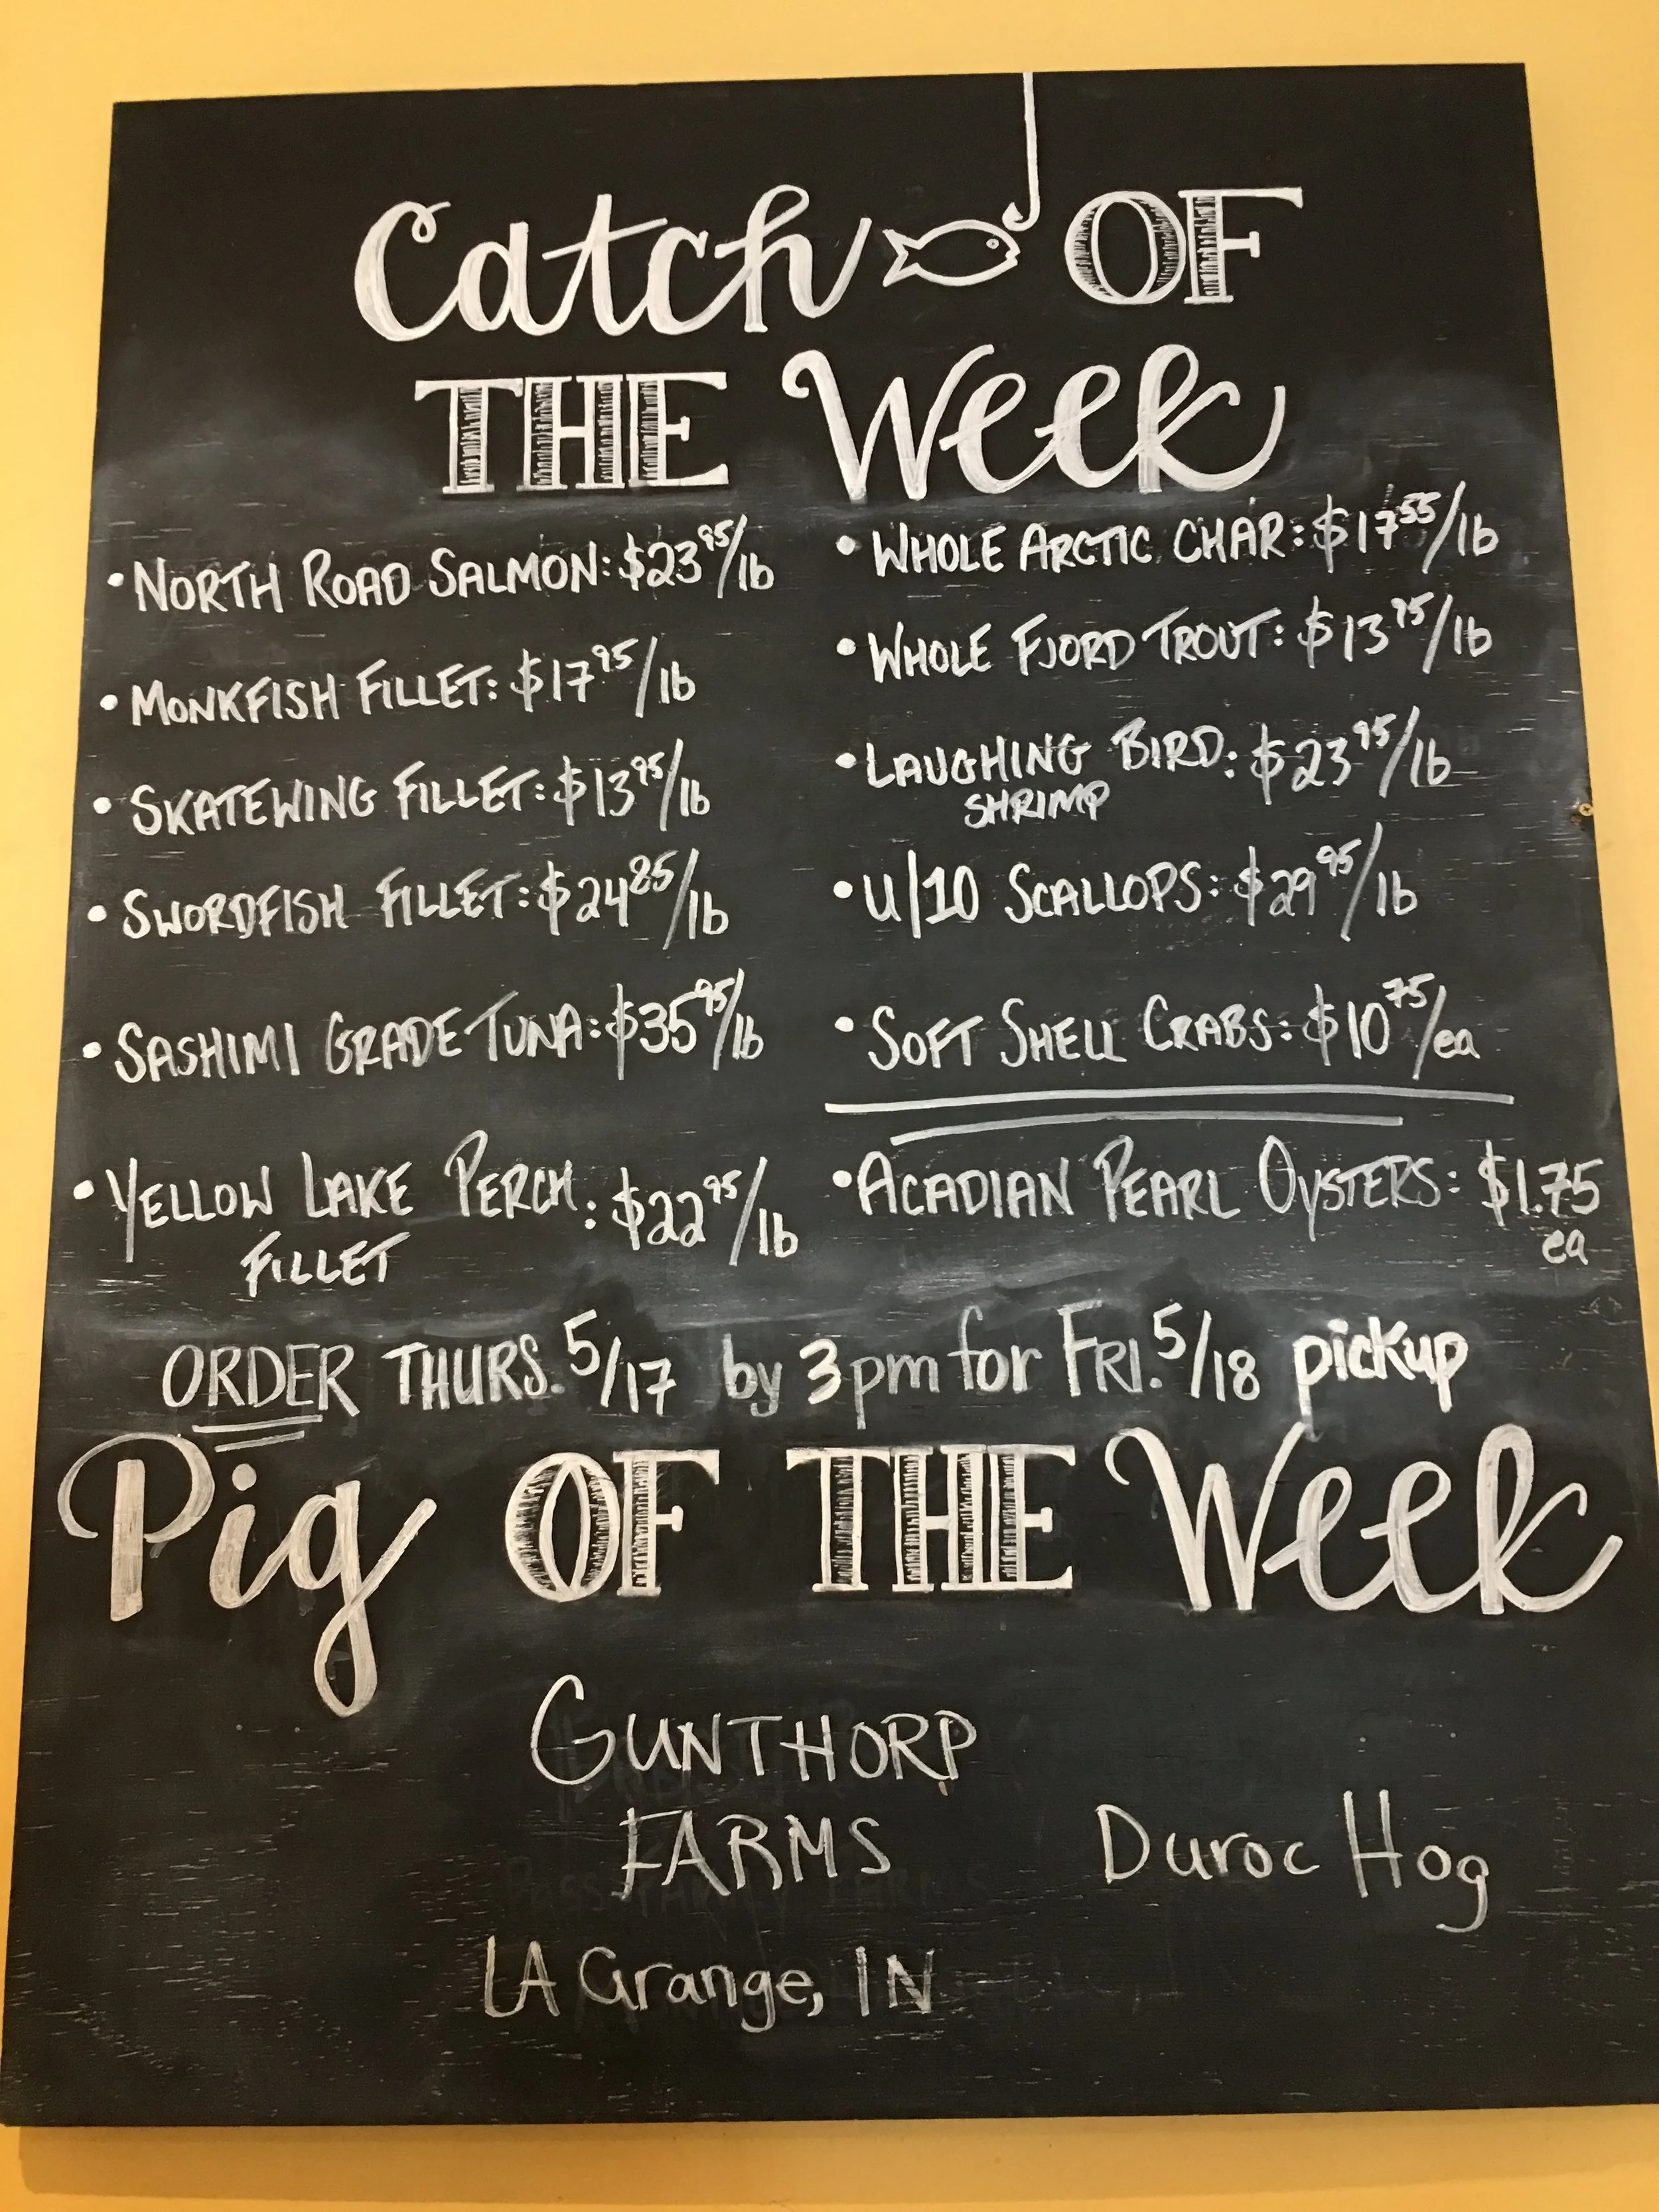 Catch OF
THE Week
• NORTH ROAD SALMON: $23⁹⁵/lb
• MONKFISH FILLET: $17⁹⁵/lb
• SKATEWING FILLET: $13⁹⁵/lb
• SWORDFISH FILLET: $24⁸⁵/lb
• SASHIMI GRADE TUNA: $35⁹⁵/lb
• YELLOW LAKE PERCH: $22⁹⁵/lb
FILLET
• WHOLE ARCTIC CHAR: $17⁵⁵/lb
• WHOLE FJORD TROUT: $13⁷⁵/lb
• LAUGHING BIRD: $23⁹⁵/lb
SHRIMP
• U/10 SCALLOPS: $29⁹⁵/lb
• SOFT SHELL CRABS: $10⁷⁵/ea
• ACADIAN PEARL OYSTERS: $1.75
ea
ORDER THURS. 5/17 by 3pm for FRI. 5/18 pickup
Pig OF THE Week
GUNTHORP
FARMS
Duroc Hog
LA Grange, IN